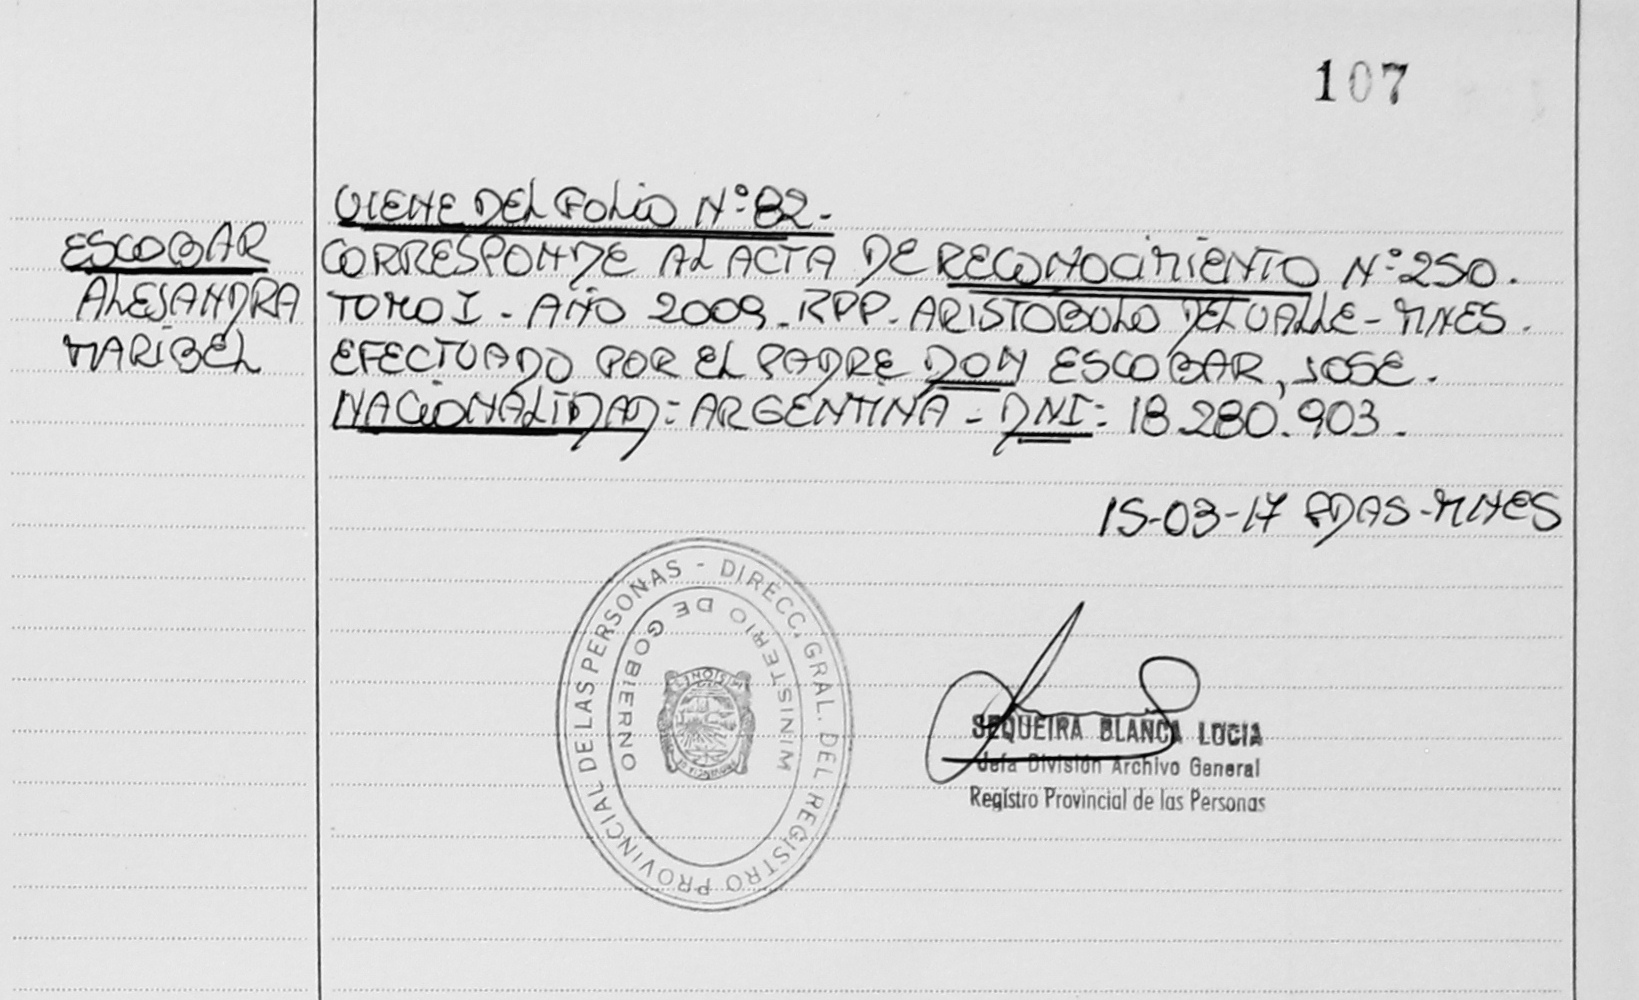 107
VIENE DEL FOLIO Nº 82.-
ESCOBAR
ALEJANDRA
MARIBEL
CORRESPONDE AL ACTA DE RECONOCIMIENTO Nº 250.
TOMO I - AÑO 2009. RPP. ARISTOBULO DEL VALLE - MNES.
EFECTUADO POR EL PADRE DON ESCOBAR, JOSE.
NACIONALIDAD: ARGENTINA - DNI: 18.280.903.
15-03-17 PDAS-MNES
DIRECC. GRAL. DEL REGISTRO PROVINCIAL DE LAS PERSONAS -
MINISTERIO DE GOBIERNO
MISIONES
PROVINCIA DE
SEQUEIRA BLANCA LUCIA
Jefa División Archivo General
Registro Provincial de las Personas